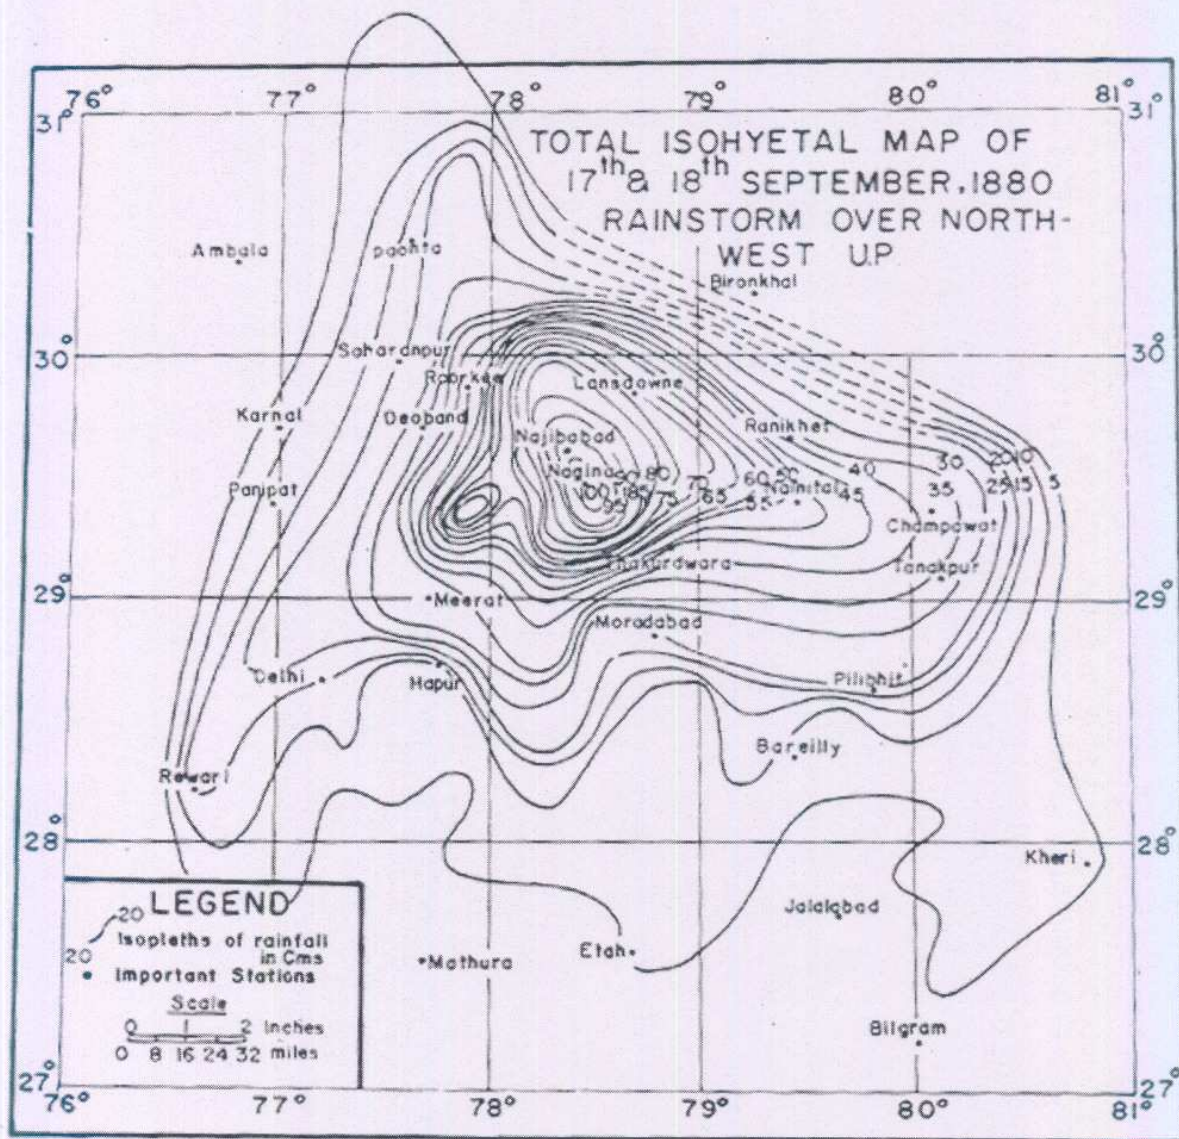 76° 77° 78° 79° 80° 81°
31° 31°
TOTAL ISOHYETAL MAP OF
17th & 18th SEPTEMBER, 1880
RAINSTORM OVER NORTH-
WEST U.P
Ambala
paonta
Bironkhal
30° 30°
Saharanpur
Roorkee
Lansdowne
Karnal
Deoband
Ranikhet
Najibabad
Nagina
Panipat
Nainital
100 95 85 80 75 70 65 60 55 50 45 40 35 30 25 20 15 10 5
Champawat
Thakurdwara
Tanakpur
29° 29°
Meerat
Moradabad
Delhi
Hapur
Pilibhit
Bareilly
Rewari
28° 28°
Kheri
LEGEND
20
Isopleths of rainfall
20 in Cms
Important Stations
Scale
0 1 2 Inches
0 8 16 24 32 miles
Jalalabad
Etah
Mathura
Bilgram
27° 27°
76° 77° 78° 79° 80° 81°